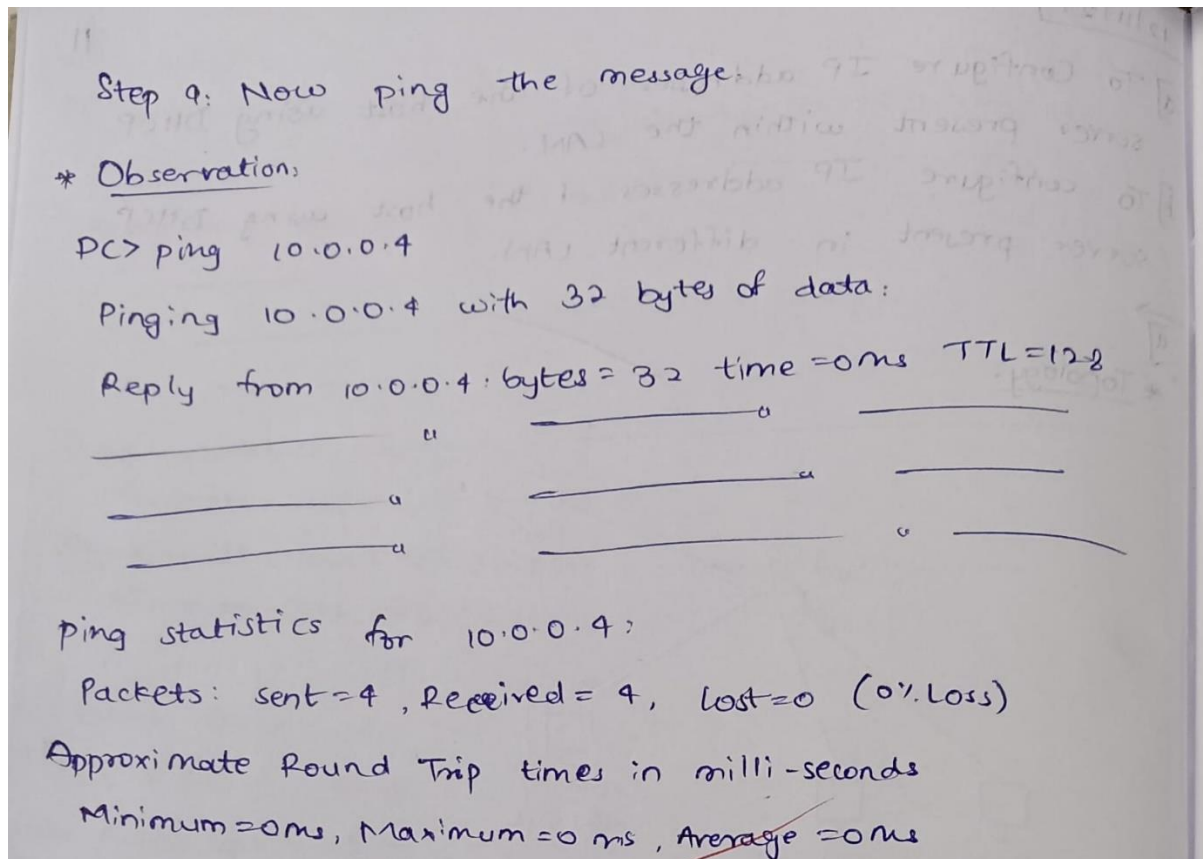 11
Step 9: Now ping the message.
* Observation:
PC> ping 10.0.0.4
Pinging 10.0.0.4 with 32 bytes of data:
Reply from 10.0.0.4: bytes=32 time=0ms TTL=128
Ping statistics for 10.0.0.4:
Packets: sent=4, Received=4, Lost=0 (0% Loss)
Approximate Round Trip times in milli-seconds
Minimum=0ms, Maximum=0ms, Average=0ms